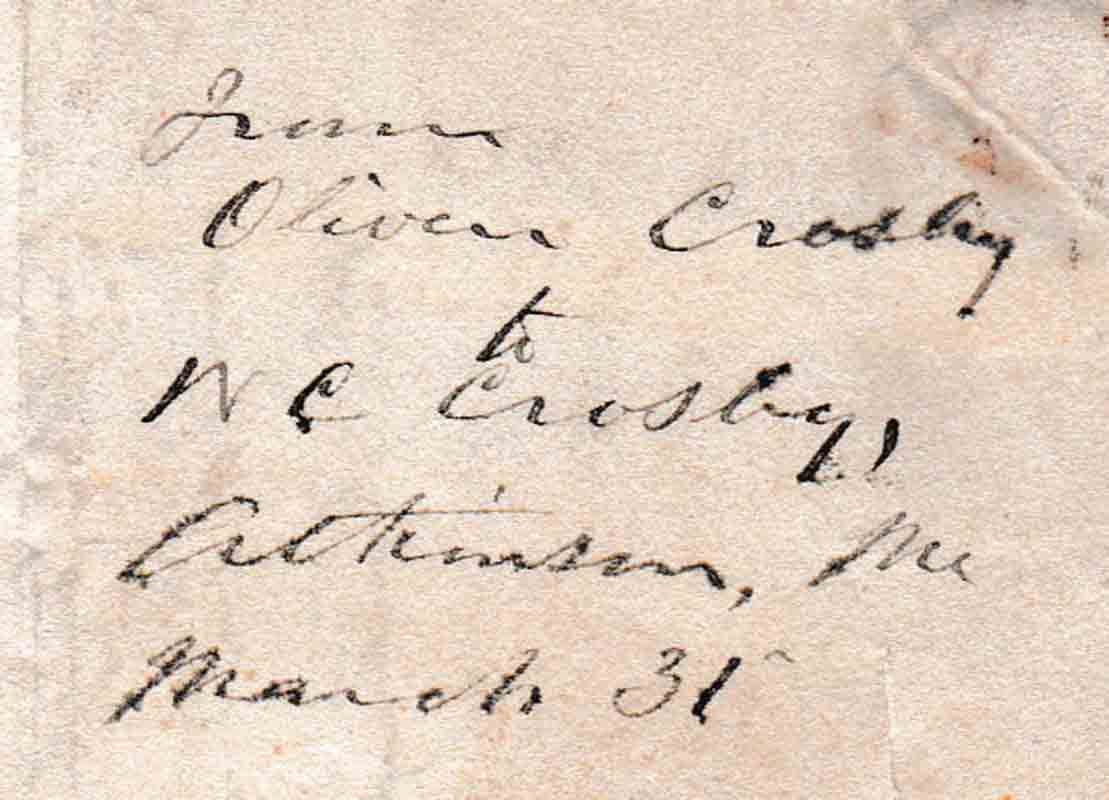 From
Oliver Crosby
to
W C Crosby,
Atkinson, Me
March 31